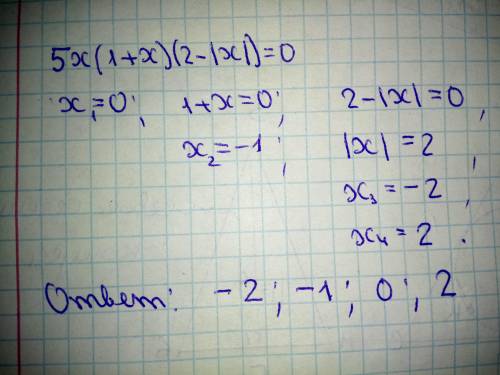 5x(1+x)(2-|x|)=0
x₁=0; 1+x=0; 2-|x|=0,
x₂=-1; |x|=2
x₃=-2,
x₄=2.
Ответ: -2; -1; 0; 2